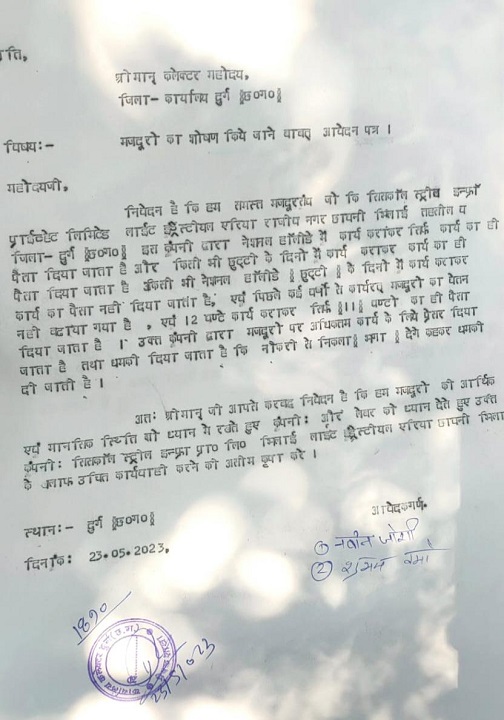 प्रति,
श्रीमान् कलेक्टर महोदय,
जिला- कार्यालय दुर्ग ॥छ०ग०॥
विषय:- मजदूरो का शोषण किये जाने बाबत् आवेदन पत्र ।
महोदयजी,
निवेदन है कि हम समस्त मजदूरसंघ जो कि सिसकॉल स्ट्रील इन्फ्रा
प्राईव्हेट लिमिटेड लाईट इंड्रस्ट्रीयल एरिया राजीव नगर छावनी भिलाई तहसील व
जिला- दुर्ग ॥छ०ग०॥ इस कंपनी द्वारा नेशनल हॉलीडे में कार्य कराकर सिर्फ कार्य का ही
पैसा दिया जाता है और किसी भी छुट्टी के दिनों में कार्य कराकर कार्य का ही
पैसा दिया जाता है किसी भी नेशनल हॉलीडे ॥ छुट्टी ॥ के दिनों में कार्य कराकर
कार्य का पैसा नहीं दिया जाता है, एवं पिछले कई वर्षो से कार्यरत् मजदूरो का वेतन
नही बढाया गया है , एवं 12 घण्टे कार्य कराकर सिर्फ ॥11॥ घण्टो का ही पैसा
दिया जाता है । उक्त कंपनी द्वारा मजदूरो पर अधिकतम कार्य के लिये प्रेसर दिया
जाता है तथा धमकी दिया जाता है कि नौकरी से निकाला भगा ॥ देंगे कहकर धमकी
दी जाती है ।
अतः श्रीमान् जी आपसे करबद्ध निवेदन है कि हम मजदूरो को आर्थिक
एवं मानसिक स्थिति को ध्यान मे रखते हुए कंपनी: और लेबर को ध्यान देते हुए उक्त
कंपनी: सिसकॉल स्ट्रील इन्फ्रा प्रा० लि० भिलाई लाईट इंड्रस्ट्रीयल एरिया छावनी भिलाई
के खलाफ उचित कार्यवाही करने की असीम कृपा करे ।
स्थान:- दुर्ग ॥छ०ग०॥
आवेदकगर्ण.
दिनांक: 23.05.2023,
① नवीन जोशी
②
1890
23/5/023